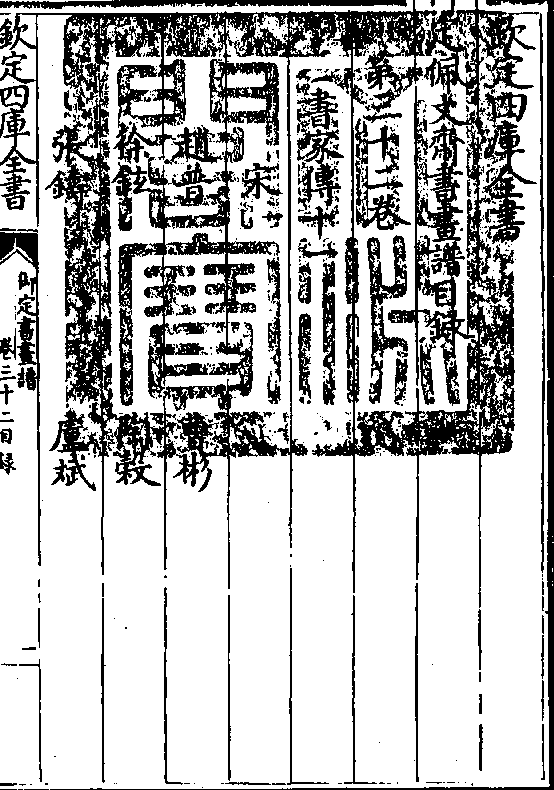 欽定四庫全書
定佩文齋書畫譜目錄
第三十二卷
書家傳十一
宋
趙普
曹彬
徐鉉
陶穀
張鑄
盧斌
欽定四庫全書
御定書畫譜
卷三十二目錄
一